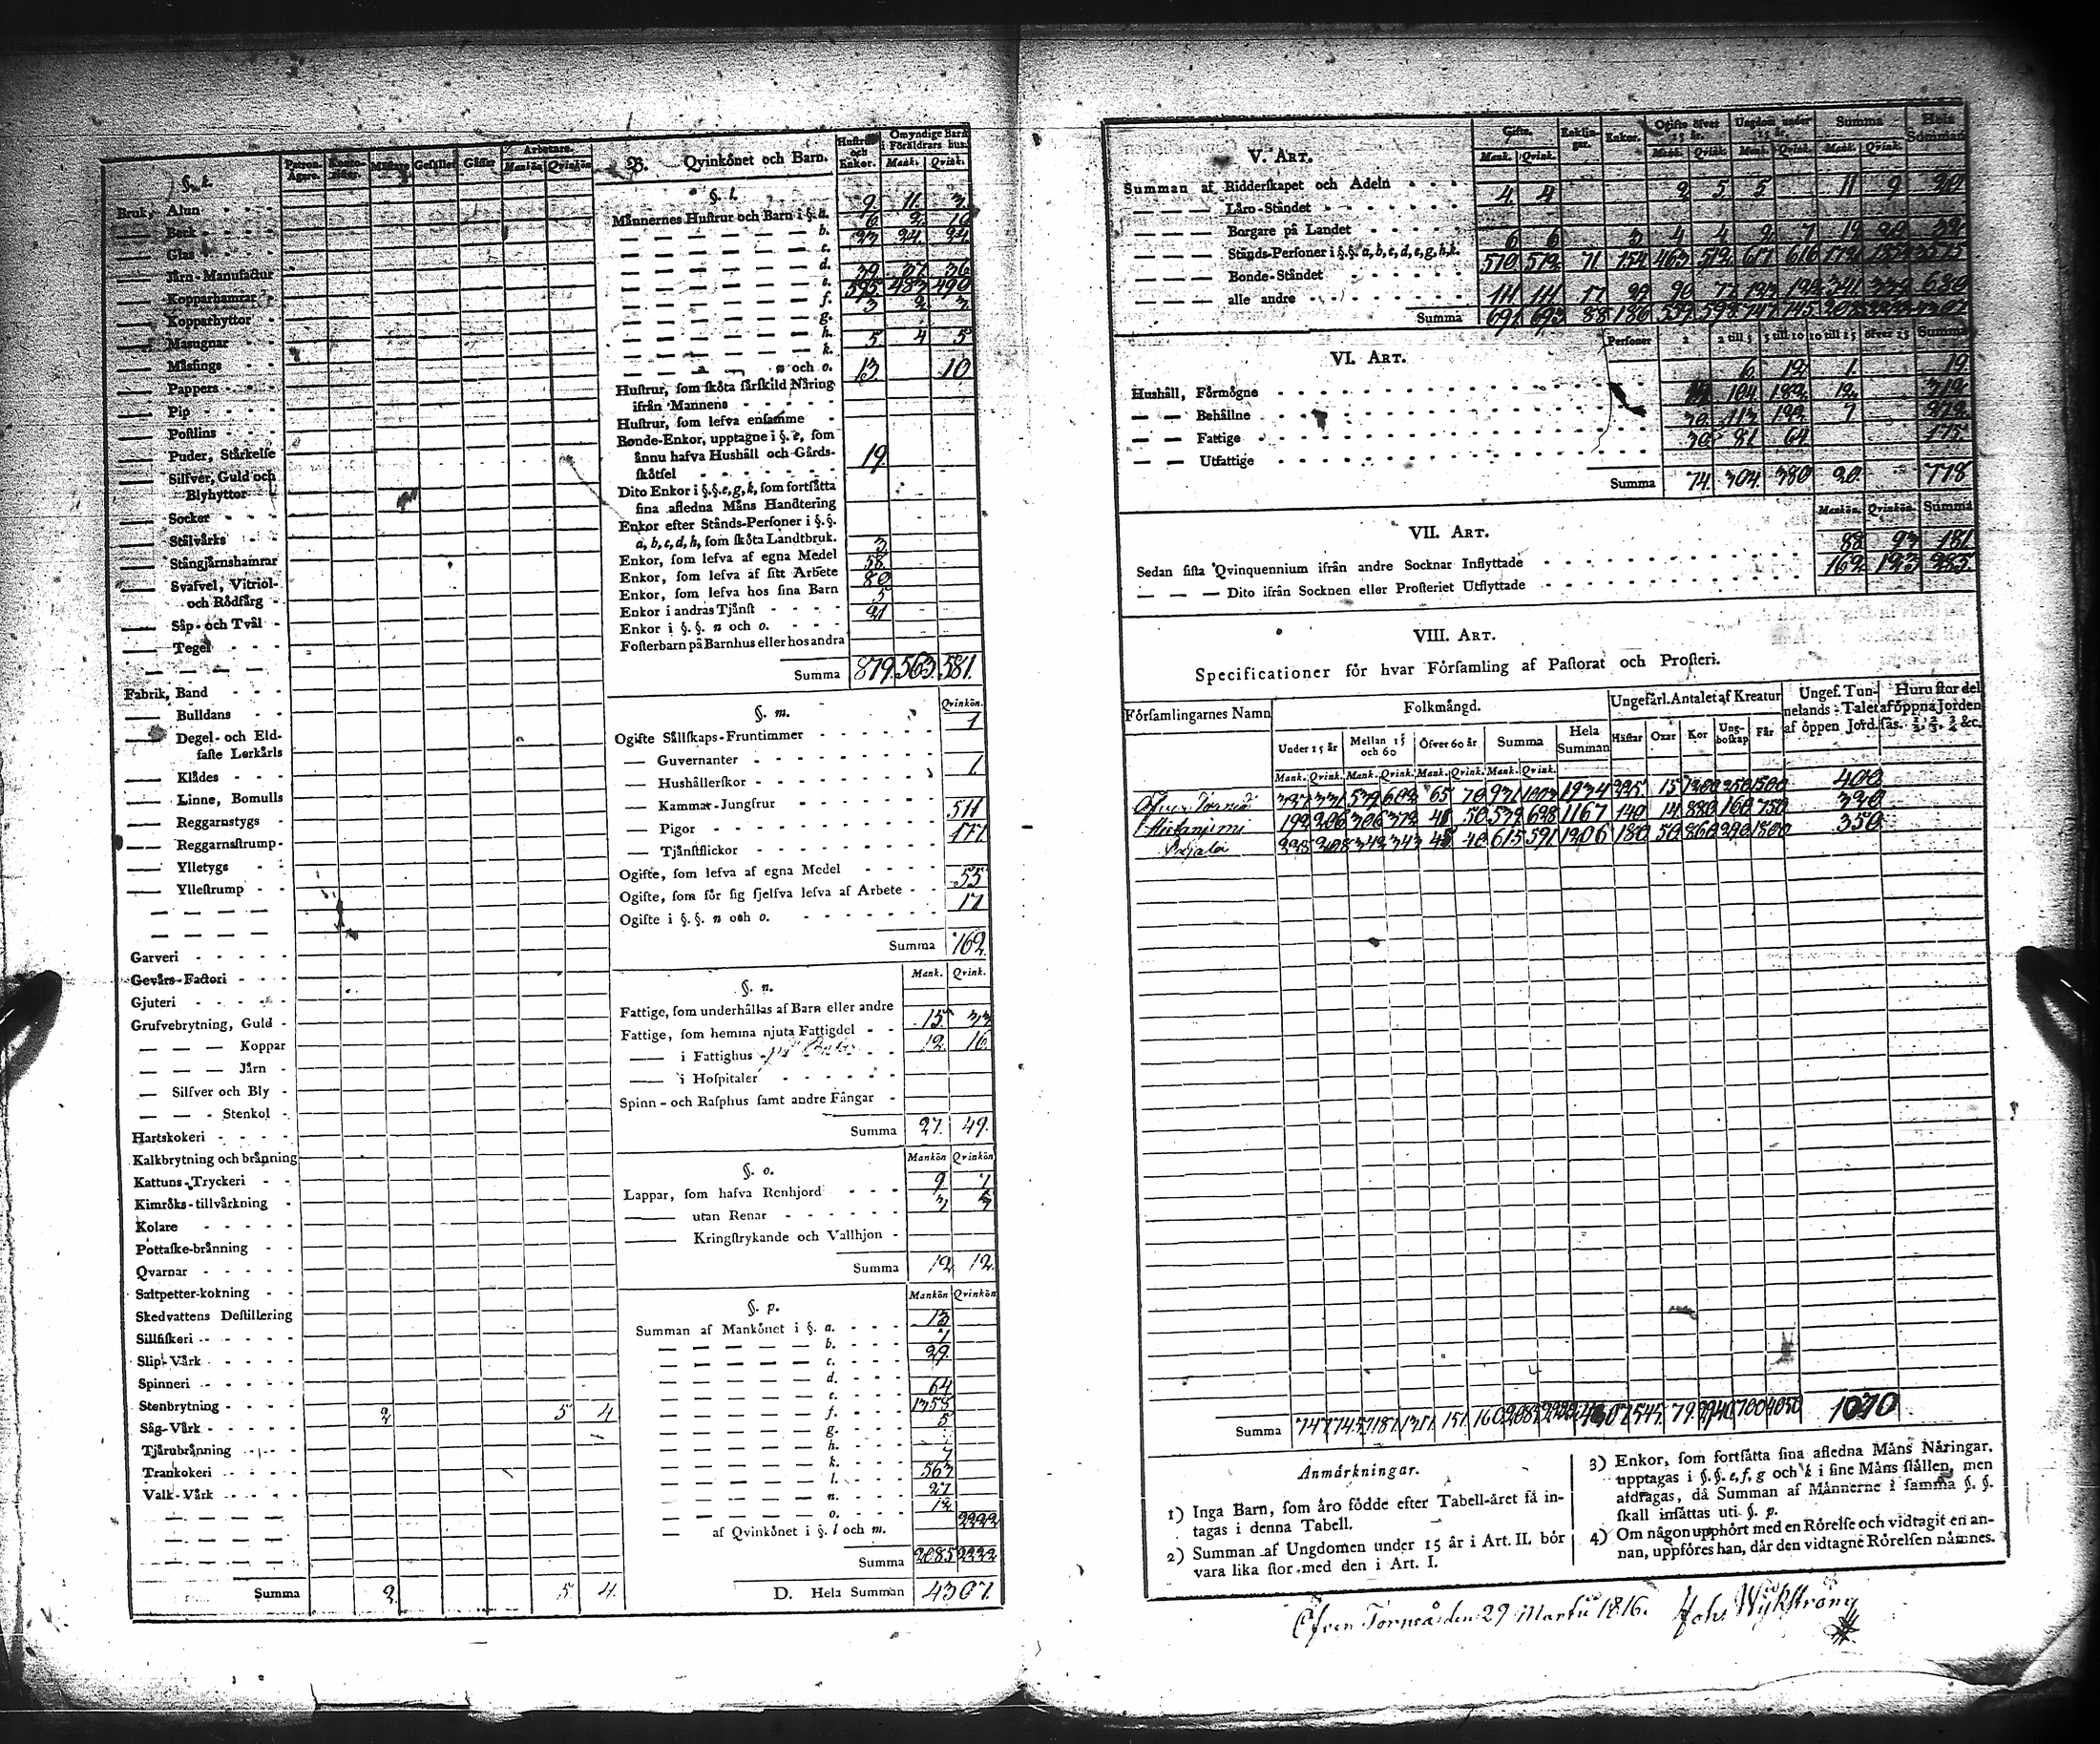 §. k.
Patron. Ägare.
Mästare
Gesäller
Arbetare.
Mankön Qvinkön
Bruk, Alun
Beck
Glas
Järn-Manufactur
Kopparhamrar
Kopparhyttor
Masugnar
Mässings
Pappers
Pip
Postlins
Puder, Stärkelse
Silfver, Guld och
Blyhyttor
Socker
Stålvärks
Stångjärnshamrar
Svafvel, Vitriol-
och Rödfärg
Såp- och Tvål
Tegel
Fabrik, Band
Bulldans
Degel- och Eld-
faste Lerkärls
Klädes
Linne, Bomulls
Reggarnstygs
Reggarnsstrump
Ylletygs
Yllestrump
Garveri
Gevärs-Factori
Gjuteri
Grufvebrytning, Guld
Koppar
Järn
Silfver och Bly
Stenkol
Hartskokeri
Kalkbrytning och bränning
Kattuns-Tryckeri
Kimröks-tillvärkning
Kolare
Pottaske-bränning
Qvarnar
Saltpetter-kokning
Skedvattens Destillering
Sillfiskeri
Slip-Värk
Spinneri
Stenbrytning
Såg-Värk 2 5 4
Tjärubränning
Trankokeri
Valk-Värk
Summa 2. 5 4.
B. Qvinkönet och Barn.
Hustrur och Enkor.
Omyndige Barn i Föräldrars hus.
Mank. Qvink.
§. l.
Männernes Hustrur och Barn i §. a. 9. 11. 3.
b.
c. 23 24. 24.
d.
e. 39 37 36
f. 595 483 490
g. 3 2. 3.
h.
k. 5. 4 5
n och o. 13. 10
Hustrur, som sköta särskild Näring
ifrån Mannens
Hustrur, som lefva ensamme
Bonde-Enkor, upptagne i §. e, som
ännu hafva Hushåll och Gårds-
skötsel 19.
Dito Enkor i §.§. e, g, k, som fortsätta
sina afledna Mäns Handtering
Enkor efter Stånds-Personer i §.§.
a, b, c, d, h, som sköta Landtbruk. 3.
Enkor, som lefva af egna Medel 58.
Enkor, som lefva af sitt Arbete 80
Enkor, som lefva hos sina Barn 5
Enkor i andras Tjänst 21
Enkor i §. §. n och o.
Fosterbarn på Barnhus eller hos andra
Summa 879. 563. 581.
§. m. Qvinkön.
Ogifte Sällskaps-Fruntimmer 1
Guvernanter
Hushållerskor 1.
Kammar-Jungfrur
Pigor 511
Tjänstflickor 177.
Ogifte, som lefva af egna Medel
Ogifte, som för sig sjelfva lefva af Arbete 55
Ogifte i §. §. n och o. 17
Summa 762.
Mank. Qvink.
§. n.
Fattige, som underhållas af Barn eller andre
Fattige, som hemma njuta Fattigdel 15. 33
i Fattighus 12. 16.
i Hospitaler
Spinn- och Rasphus samt andre Fångar
Summa 27. 49.
Mankön Qvinkön
§. o.
Lappar, som hafva Renhjord 9 7
utan Renar 3 5
Kringstrykande och Vallhjon
Summa 12 12.
Mankön Qvinkön
§. p.
Summan af Mankönet i §. a. 13
b. 7
c. 29
d.
e. 64
f. 1358
g. 5
h.
k. 7
l. 563
n. 27
o. 12
af Qvinkönet i §. l och m. 2222
Summa 2085 2222
D. Hela Summan 4307.
V. Art.
Gifte.
Mank. Qvink.
Enklingar. Enkor.
Ogifte öfver 15 år.
Mank. Qvink.
Ungdom under 15 år.
Mank. Qvink.
Summa
Mank. Qvink.
Hela Summan
Summan af Ridderskapet och Adeln
Läro-Ståndet 4. 4 2 5 5 11 9 20
Borgare på Landet
Stånds-Personer i §.§. a, b, c, d, e, g, h, k. 6 6 3 4 4 2 7 12 20 32
Bonde-Ståndet 570 572 71 154 463 512 617 616
alle andre 111 111 17 29 90 77 341 339 680
Summa 691 693 88 186
VI. Art.
Personer 2 2 till 5 5 till 10 10 till 15 öfver 15 Summa
Hushåll, Förmögne 6 12 1. 19.
Behållne 104 182 12. 312
Fattige 30. 113 122. 7 272.
Utfattige 30 81 64 175.
Summa 74. 304. 380 20. 778
Mankön. Qvinkön. Summa
VII. Art.
Sedan sista Qvinquennium ifrån andre Socknar Inflyttade 88 93 181.
Dito ifrån Socknen eller Prosteriet Utflyttade 162 123 285.
VIII. Art.
Specificationer för hvar Församling af Pastorat och Prosteri.
Församlingarnes Namn
Folkmängd.
Ungefärl. Antalet af Kreatur
Ungef. Tun-
nelands-Talet
af öppen Jord.
Huru stor del
af öppna Jorden
Under 15 år Mellan 15 och 60 Öfver 60 år Summa Hela Summan
Hästar Oxar Kor Ung-boskap Får
Mank. Qvink. Mank. Qvink. Mank. Qvink. Mank. Qvink.
Öfver Torneå 327 331 539 602 65 70 931 1003 1934 225 15 1200 250 1500 400
Hietaniemi 192 206 306 372 41 50 539 628 1167 140 14 880 160 750 320
Pajala 228 208 342 343 45 40 615 591 1206 180 50 860 290 1800 350
Summa 747 745 1187 1317 151. 160. 2085 2222 4307 545. 79. 2940 700 4050 1070
Anmärkningar.
1) Inga Barn, som äro födde efter Tabell-året få in-
tagas i denna Tabell.
2) Summan af Ungdomen under 15 år i Art. II. bör
vara lika stor med den i Art. I.
3) Enkor, som fortsätta sina afledna Mäns Näringar,
upptagas i §.§. e, f, g och k i sine Mäns ställen, men
afdragas, då Summan af Männerne i samma §. §.
skall insättas uti §. p.
4) Om någon upphört med en Rörelse och vidtagit en an-
nan, uppföres han, där den vidtagne Rörelsen nämnes.
Öfver Torneå den 29 Martii 1816. Joh: Wikström